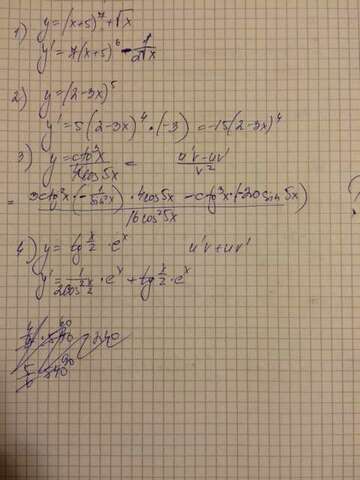 1) y=(x+5)^7+√x
y'=7(x+5)^6-1/(2√x)
2) y=(2-3x)^5
y'=5(2-3x)^4·(-3)=-15(2-3x)^4
3) y=ctg^3x/(4cos5x)= (u'v-uv')/v^2
=(3ctg^2x·(-1/sin^2x)·4cos5x-ctg^3x·(-20sin5x))/(16cos^2 5x)
4) y=tg x/2·e^x u'v+uv'
y'=1/(2cos^2 x/2)·e^x+tg x/2·e^x